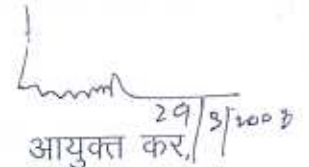 29/3/2003
आयुक्त कर,